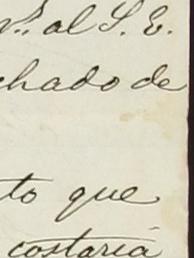 al S. E.
chado de
to que
costaría